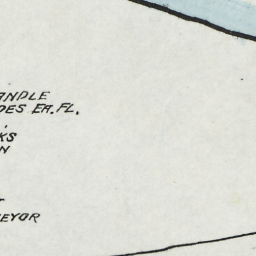 ANDLE
DES EA. FL.
KS
N
EYOR